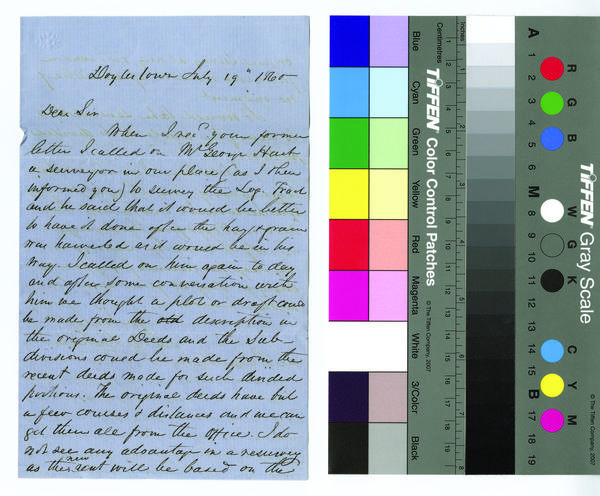 Doylestown July 19" 1860
Dear Sir
When I recd your former
letter I called on Mr George Hart
a surveyor in our place (as I then
informed you) to survey the Log. Tract
and he said that it would be better
to have it done after the hay & grain
was harvested as it would be in his
way. I called on him again to day
and after some conversation with
him we thought a plot or draft could
be made from the old description in
the original Deeds and the Sub-
divisions could be made from the
recent deeds made for such divided
portions. The original deeds have but
a few courses & distances and we can
get them all from the office. I do
not see any advantage in a resurvey
as the new rent will be based on the
Blue
Cyan
Green
Yellow
Red
Magenta
White
3/Color
Black
Centimetres
Inches
TIFFEN Color Control Patches
© The Tiffen Company, 2007
A 1 2 3 4 5 6 M 8 9 10 11 12 13 14 15 B 17 18 19
R G B
W G K
C Y M
TIFFEN Gray Scale
© The Tiffen Company, 2007